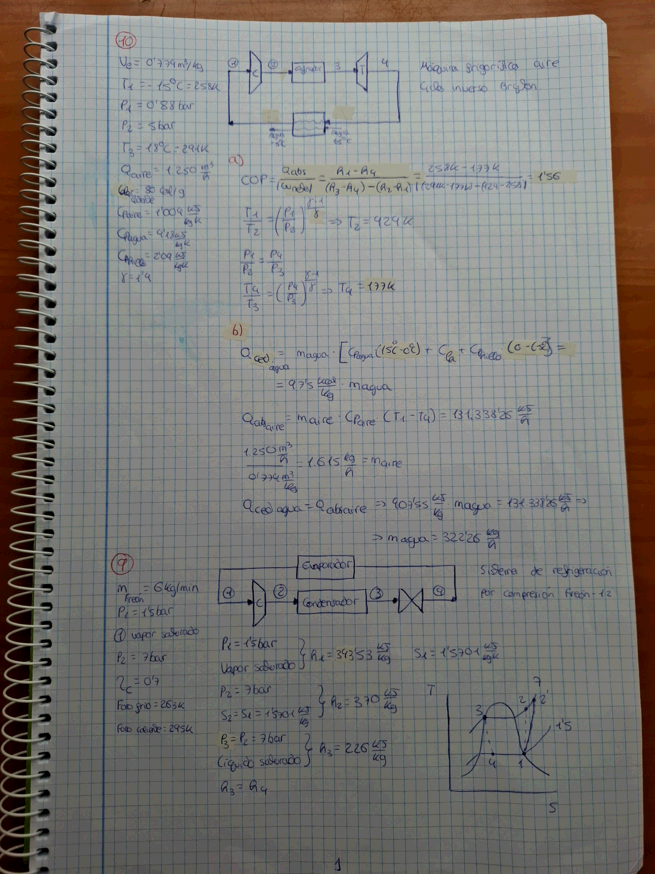 10
V₀ = 0'774 m³/kg
T₁ = -15°C = 258K
P₁ = 0'88 bar
P₂ = 5 bar
T₃ = 18°C = 291K
Qaire = 1.250 m³/h
80 kcal/kg
Cpaire = 1'004 kJ/kgK
Cpagua
Cphielo
γ = 1'4
① C ② 3 T 4
Máquina frigorífica aire
Ciclo inverso Brayton
a)
COP = Qabs/|Wneto| = (h₁-h₄)/((h₃-h₄)-(h₂-h₁)) = (258K-177K)/|(291K-177K)-(424-258)| = 1'56
T₁/T₂ = (P₁/P₂)^((γ-1)/γ) ⇒ T₂ = 424K
P₁/P₂ = P₄/P₃
T₄/T₃ = (P₄/P₃)^((γ-1)/γ) ⇒ T₄ = 177K
b)
Qced agua = magua · [Cpagua (15°C-0°C) + + Cphielo (0-(-2))] =
= 97'5 kcal/kg · magua
Qabsaire = maire · Cpaire (T₁-T₄) = 131.338'26 kJ/h
1.250 m³/h / 0'774 m³/kg = 1.615 kg/h = maire
Qced agua = Qabsaire ⇒ 407'55 kJ/kg magua = 131.338'26 kJ/h ⇒
⇒ magua = 322'26 kg/h
9
m freón = 6 kg/min
P₁ = 1'5 bar
① vapor saturado
P₂ = 7 bar
η꜀ = 0'7
Foco frío = 263K
Foco cálido = 295K
Evaporador
① C ② Condensador ③ ④
Sistema de refrigeración
por compresión Freón-12
P₁ = 1'5 bar
Vapor saturado } h₁ = 343'53 kJ/kg S₁ = 1'5701 kJ/kgK
P₂ = 7 bar
S₂ = S₁ = 1'5701 kJ/kgK } h₂ = 370 kJ/kg
P₃ = P₂ = 7 bar
Líquido saturado } h₃ = 226 kJ/kg
h₃ = h₄
T
7
3 2 2'
1'5
4 1
S
1